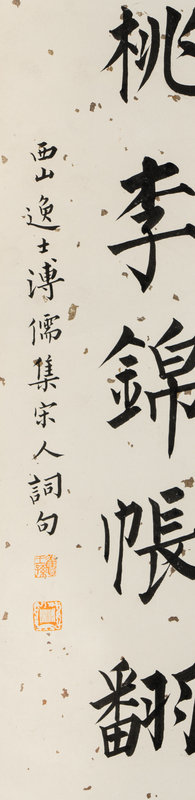 桃李錦帳翻
西山逸士溥儒集宋人詞句